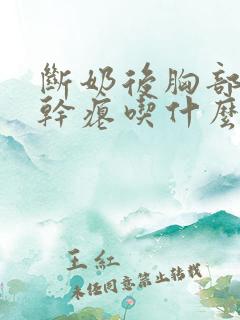 斷奶後胸部
幹癟喫什麼
王紅
未经同意禁止转载